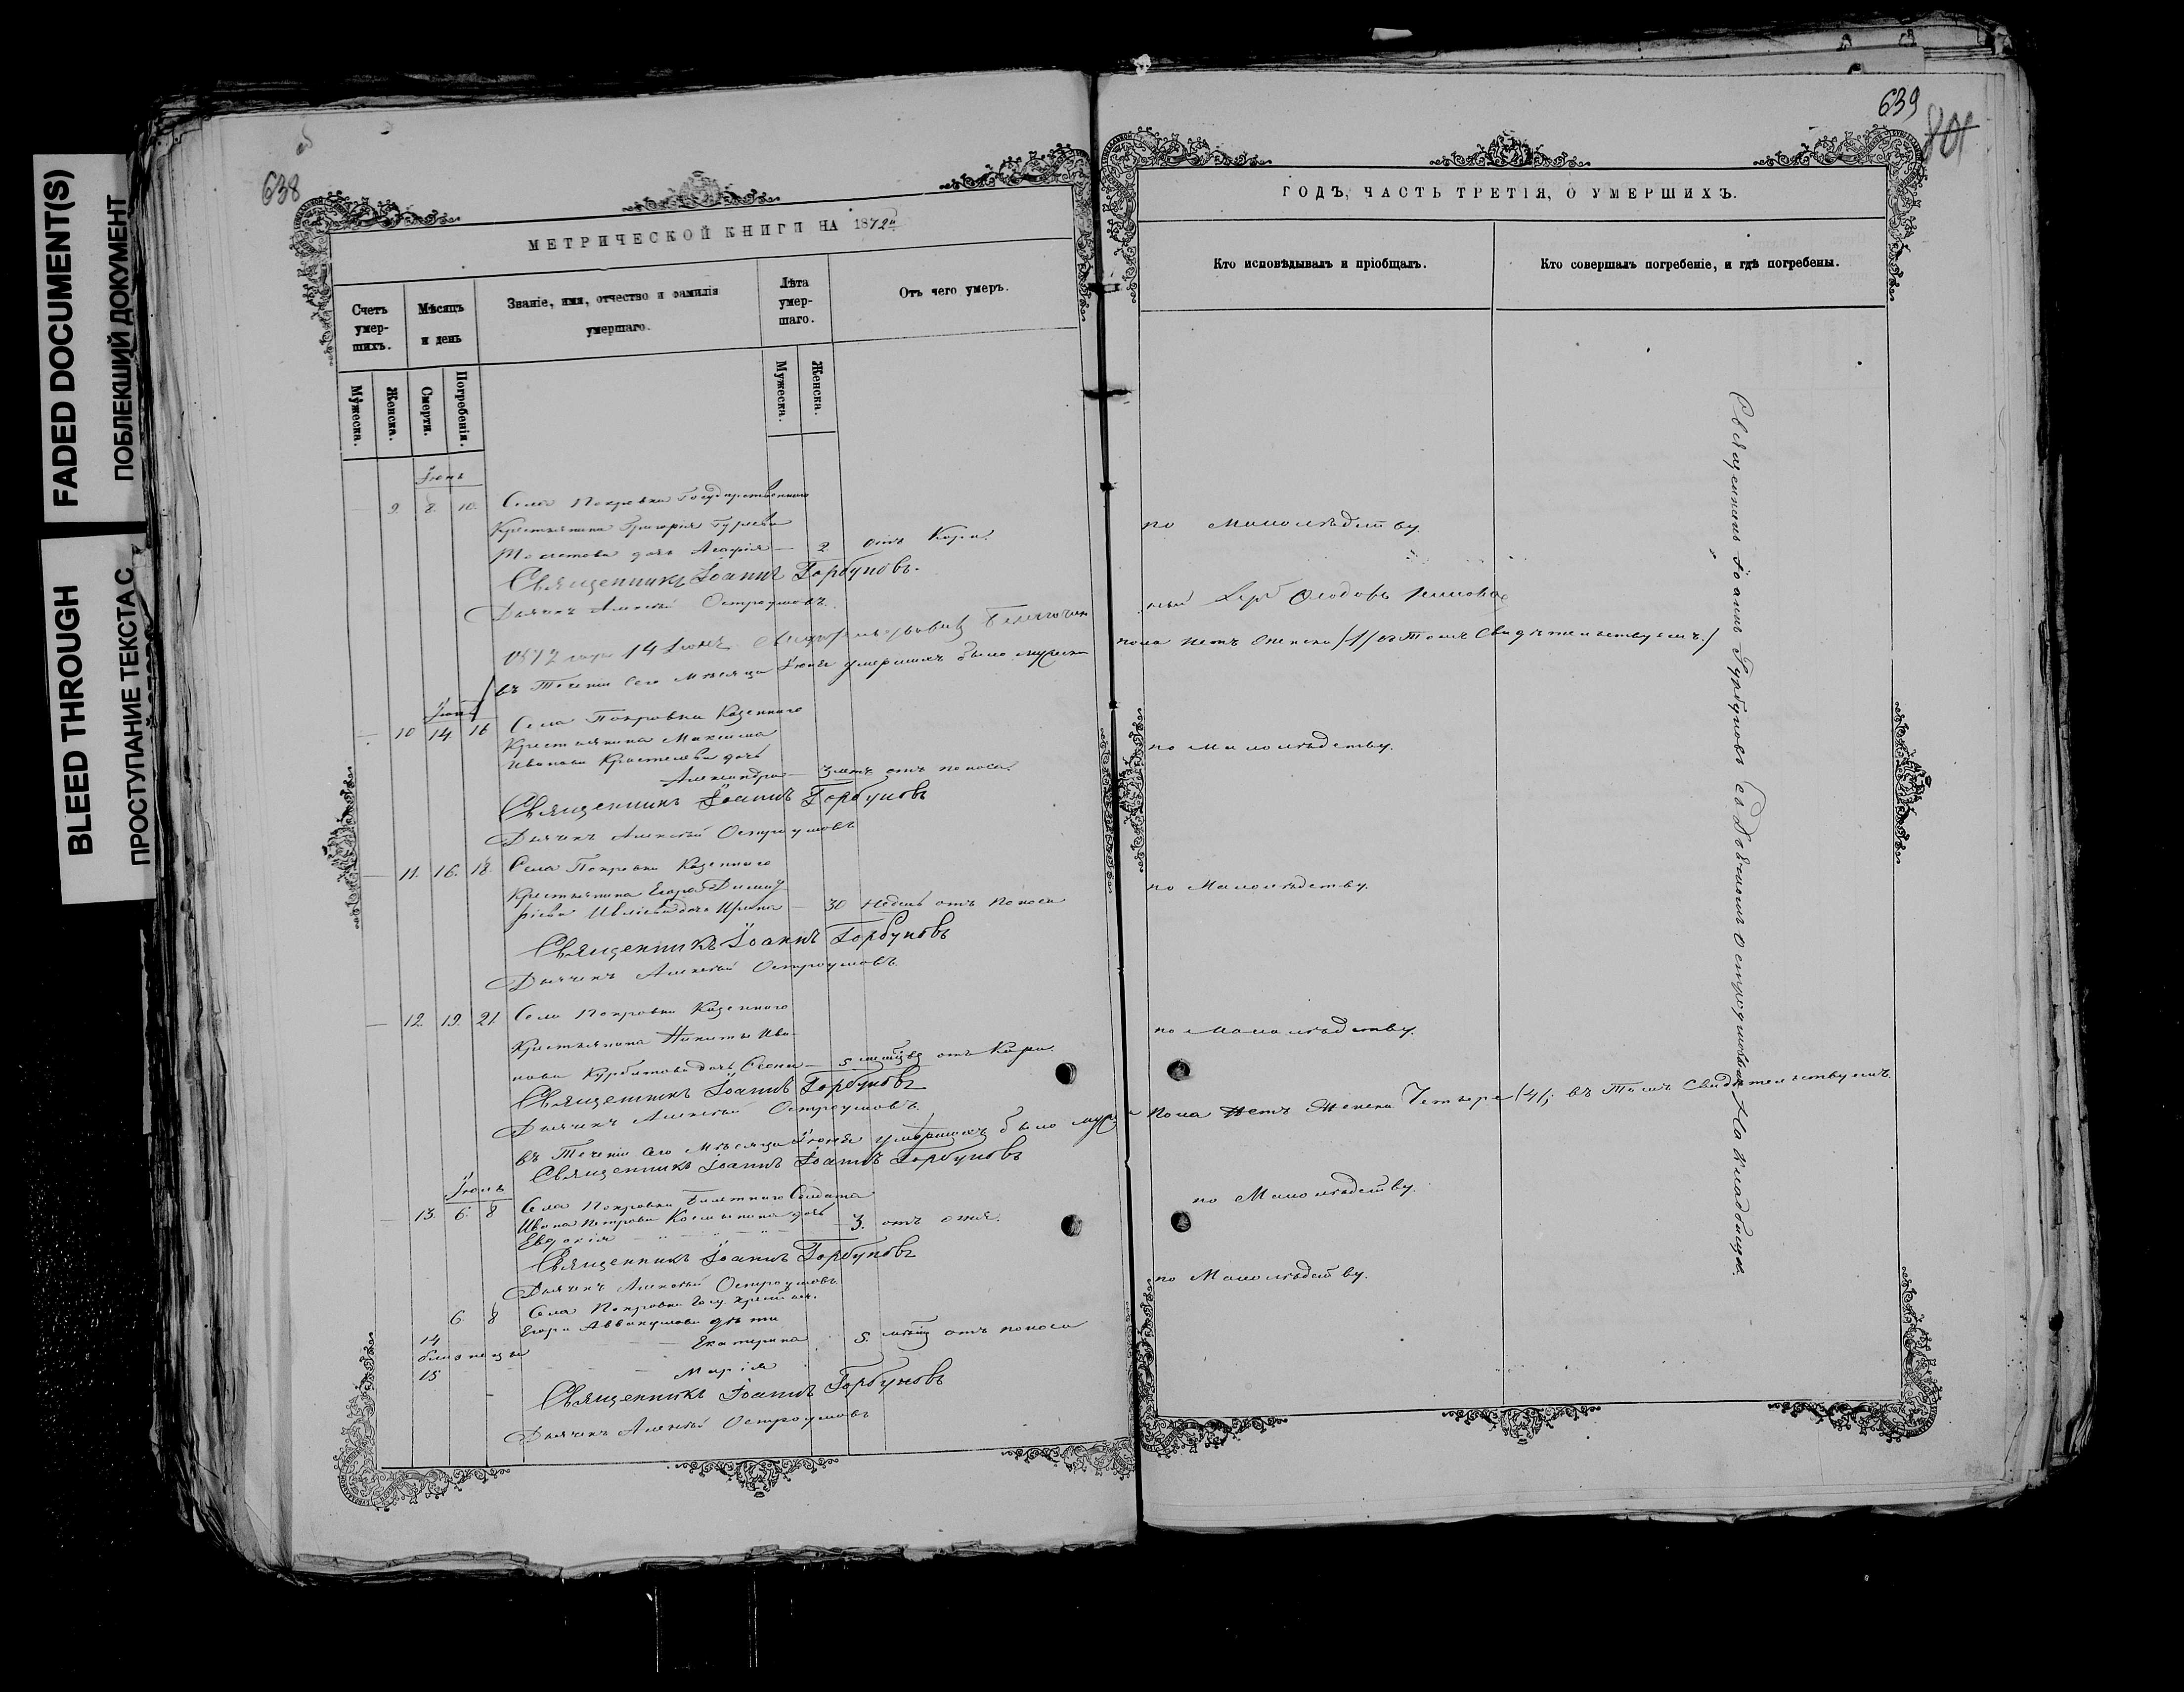 FADED DOCUMENT(S)
ПОБЛЕКШИЙ ДОКУМЕНТ
BLEED THROUGH
ПРОСТУПАНИЕ ТЕКСТА С
638
МЕТРИЧЕСКОЙ КНИГИ НА 1872
Счетъ умер-шихъ.
Мѣсяцъ и день
Званіе, имя, отчество и фамилія умершаго.
Лѣта умер-шаго.
Отъ чего умеръ.
Мужеска.
Женска.
Смерти.
Погребенія.
Мужеска.
Женска.
Іюнь
9. 8. 10. Села Покровки Государственнаго
Крестьянина Григорія Гурьева
дочь Агафія — 2 отъ Кори.
Священникъ Іоаннъ Горбуновъ.
Дьячекъ Алексѣй Остроумовъ.
1872 года 14 Іюня
въ Теченіи сего мѣсяца умершихъ было мужеска
Іюнь
10 14. 16 Села Покровки Казеннаго
Крестьянина Максима
Иванова дочь
Александра — 3 отъ поноса.
Священникъ Іоаннъ Горбуновъ
Дьячекъ Алексѣй Остроумовъ
11. 16. 18. Села Покровки Казеннаго
Крестьянина Егора Димит
ріева дочь Ирина — 30 недель отъ поноса
Священникъ Іоаннъ Горбуновъ
Дьячекъ Алексѣй Остроумовъ.
12. 19. 21. Села Покровки Казеннаго
Крестьянина Никиты Ива-
нова Курбатова дочь — 5 отъ Кори.
Священникъ Іоаннъ Горбуновъ
Дьячекъ Алексѣй Остроумовъ.
въ Теченіи сего Мѣсяца Іюня умершихъ было муж
Священникъ Іоаннъ Іоаннъ Горбуновъ
Іюль
13. 6. 8 Села Покровки Билетнаго Солдата
Ивана Петрова дочь
Евдокія — 3. отъ
Священникъ Іоаннъ Горбуновъ
Дьячекъ Алексѣй Остроумовъ.
6. 8 Села Покровки Госу. крестьян.
Егора Аввакумова дѣти
14 Екатерина 5. отъ поноса
близнецы
15 Марія
Священникъ Іоаннъ Горбуновъ
Дьячекъ Алексѣй Остроумовъ
639
801
ГОДЪ, ЧАСТЬ ТРЕТІЯ, О УМЕРШИХЪ.
Кто исповѣдывалъ и пріобщалъ.
Кто совершалъ погребеніе, и гдѣ погребены.
по Малолѣдству.
пола нетъ женска /1/ въ Томъ Свидѣтельствуемъ./
по Малолѣдству.
по Малолѣдству.
по Малолѣдству.
пола нетъ Женска Четыре /4/; въ Томъ Свидѣтельствуемъ.
по Малолѣдству.
по Малолѣдству.
Священникъ Іоаннъ Горбуновъ съ Дьячкомъ Остроумовымъ На Кладбищѣ.